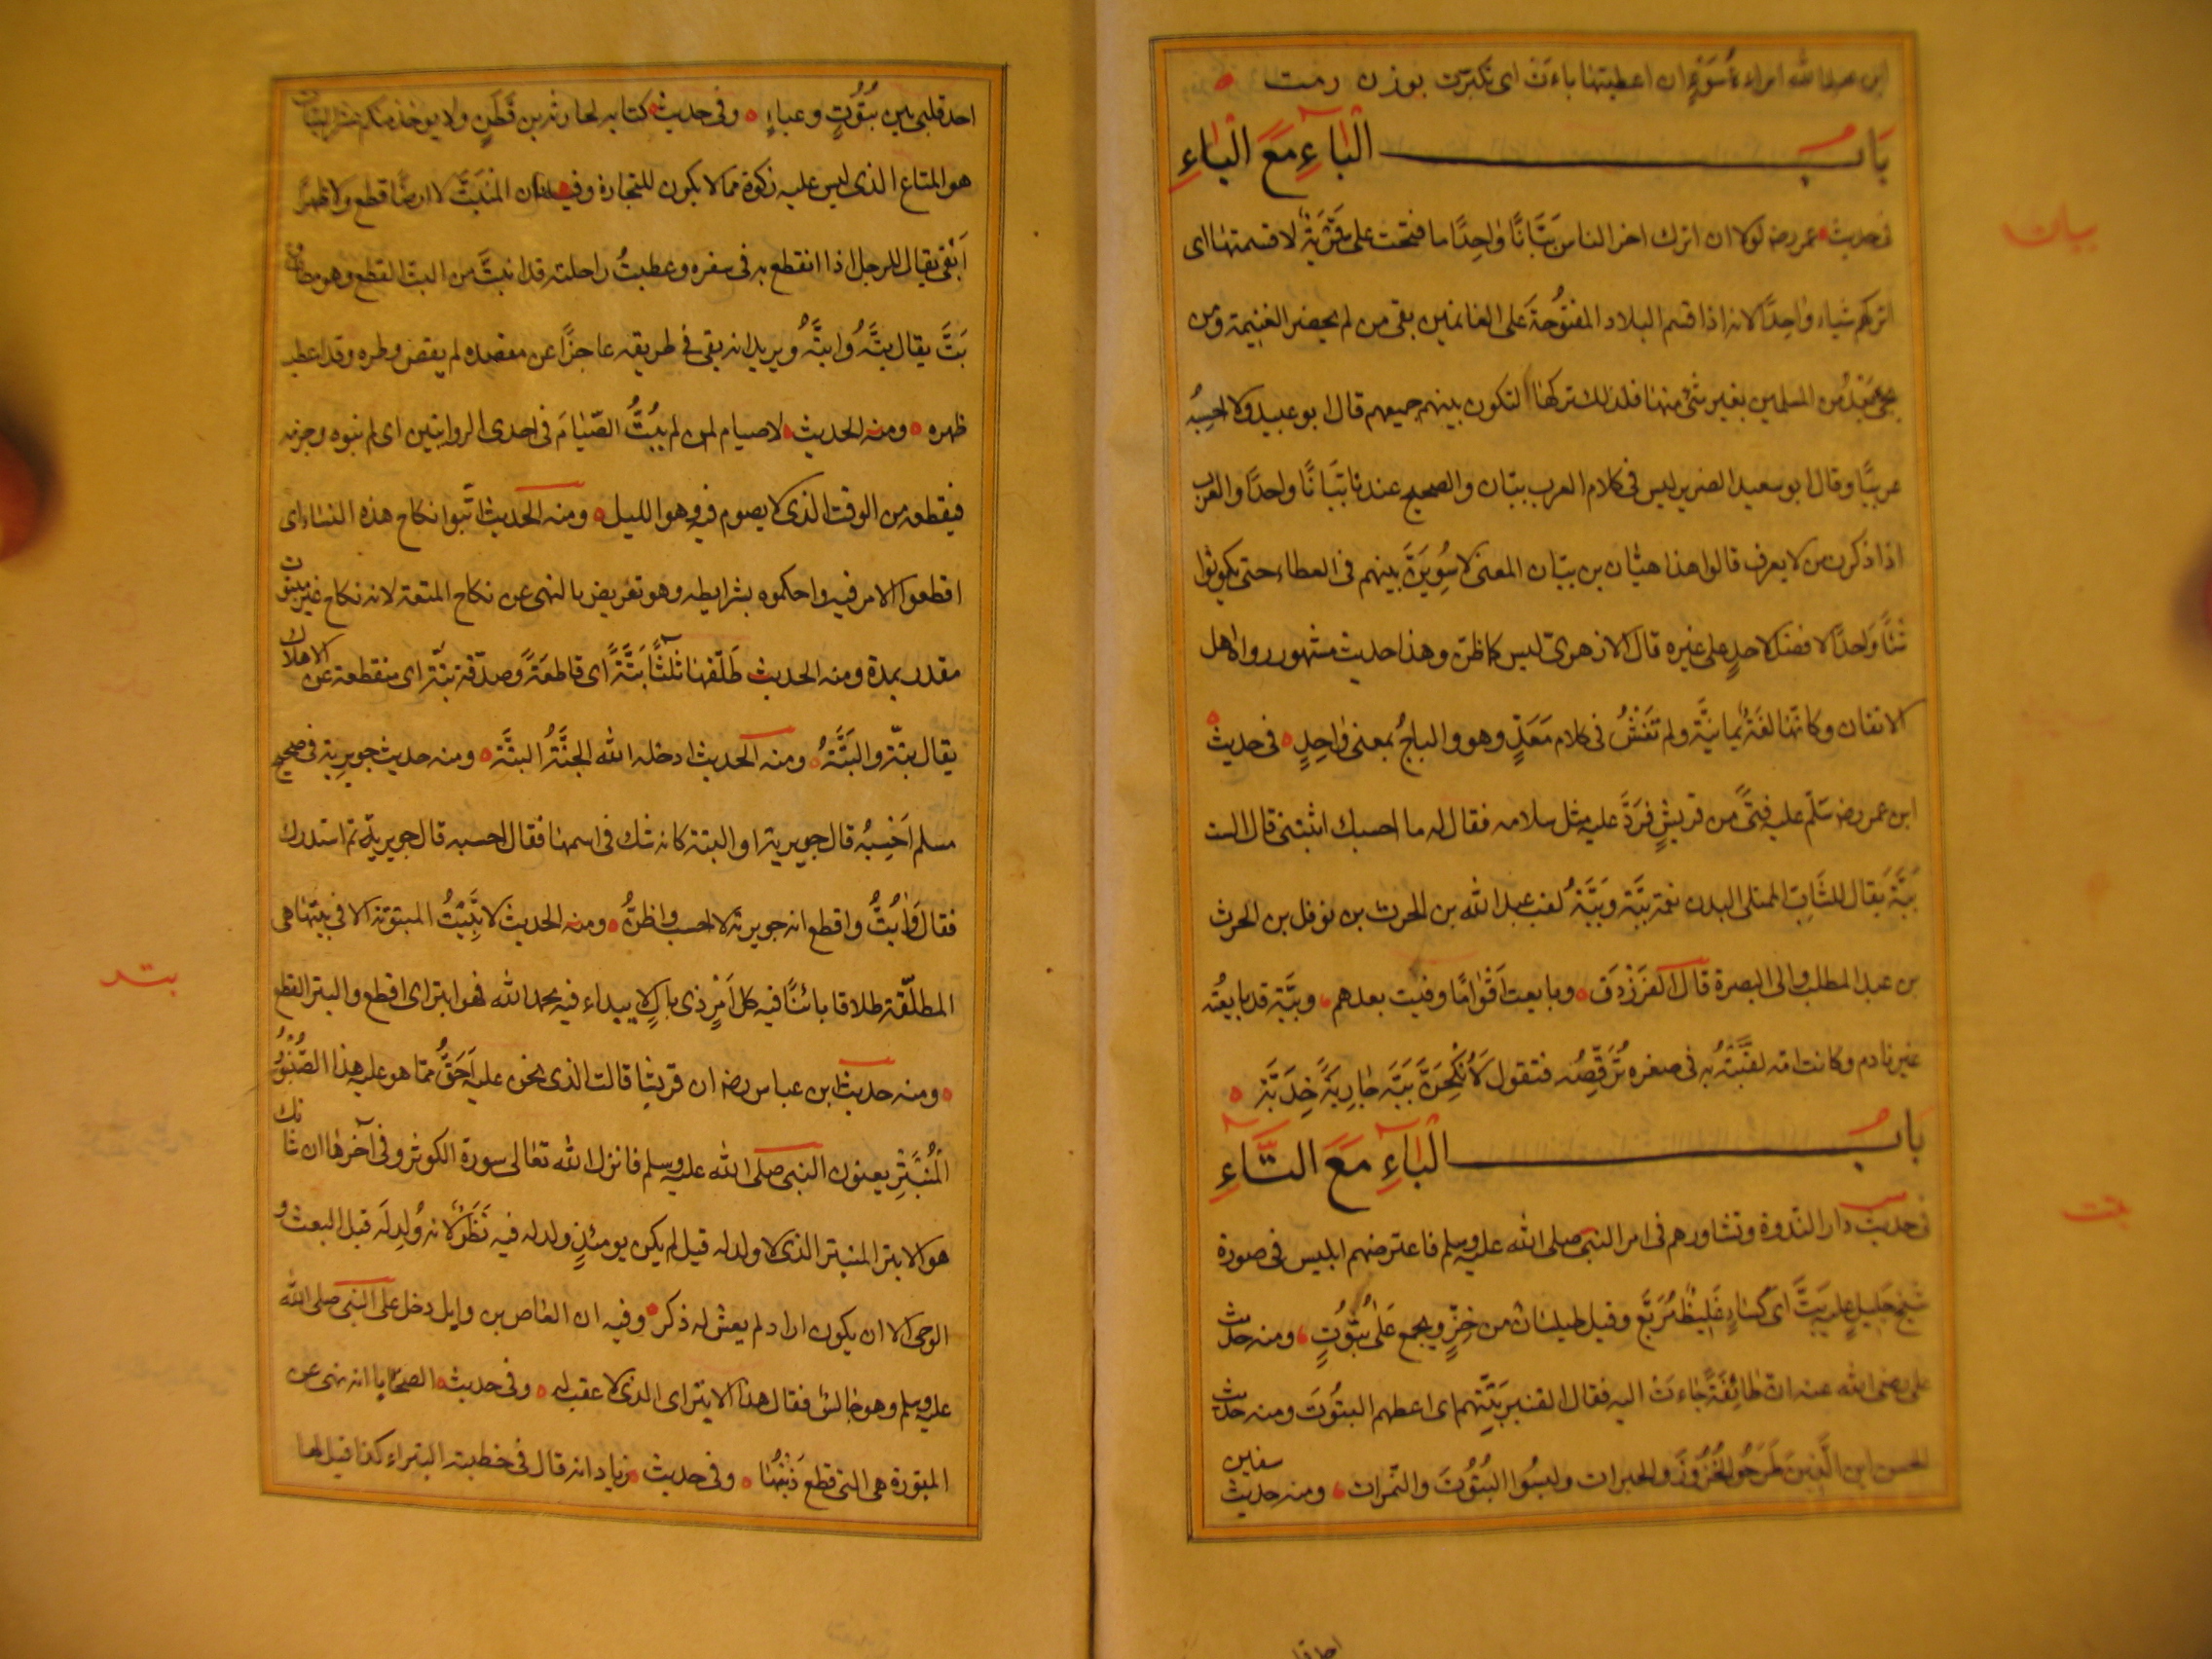 ابن عبد الله امراة سوء ان اعطيتها باءت اى تكبرت بوزن رمت
باب الْبَاءِ مَعَ الْبَاءِ
فى حديث عمر رضه لولا ان اترك اخر الناس بَبَّانًا وٰاحِدًا ما فتحت على قَرْيَةٌ لا قسمتها اى
اتركهم شياء واحِدًا لانه اذا قسم البلاد المفتُوحَةَ على الغانمين بقى من لم يحضر الغنيمة ومن
يجئ بَعْدُ من المسلمين بغير شئ منها فلذلك تركها لتكون بينهم جميعهم قال ابو عبيد ولا احسِبُه
عربيًّا وقال ابو سعيد الضرير ليس فى كلام العرب ببّان والصحيح عندنا بَيَّانًا واحدًا والعرب
اذا ذكرت من لا يعرف قالوا هذا هيّان بن بيّان المعنى لاسُوِيَنَّ بينهم فى العطاء حتى يكونوا
شَئًا وَاحدًا لا فضل لاحدٍ على غيره قال الازهرىّ ليس كما ظنّ وهذا حديث مشهور رواه اهل
الاتقان وكانّها لغَةٌ يمانيَّة ولم تَفْشُ فى كلام مَعَدٍّ وهو والباجُ بمعنى وٰاحِدٍ ۰ فى حديث
ابن عمر رضه سَلّم عليه فتىً من قريشٍ فَرَدَّ عليه مثل سلامه فقال له ما احسبك اثبتنى قال الست
بَبَّةَ يقال للشَّابِ الممتلى البدن نعمة بَبَّة وبَبَّةُ لقب عبد الله بن الحرث بن نوفل بن الحرث
بن عبد المطلب والى البصرة قال الفَرَزْدَق ۰ وبايعت اَقْوٰامًا وفيت بعدهم، وببَّة قد بايعتُه
غير نادم وكانت امّه لقّبَتْهُ به فى صغره تُرَقِّصُه فتقول لَاُنْكِحَنَّ بَبَّه جٰارِيَةً خِدَبَّة ۰
بابُ الْبَآءِ مَعَ التَّاءِ
فى حديث دار الندوة وتشاورهم فى امر النبى صلى الله عليه وسلم فاعترضهم ابليس فى صورة
شيخ جَليلٍ عليه بَتَّ اى كساءٍ غَلِيظٌ مُرَبَّع وقيل طيلسٰان من خزٍّ ويجمع على بُتُوتٍ، ومنه حديث
على رضى الله عنه انّ طٰائِفَةً جٰاءَتْ اليه فقال القنبر بَتّتهم اى اعطهم البتُوتَ ومنه حديث
الحسن اين الَّذِينَ طَرَحُوا الخُزُوزَ والحبرات ولبسُوا البُتُوتَ والنّمرات، ومنه حديث
سفين
احد قلبى بين بُتُوتٍ وعباءٍ ۰ وفى حديث كتابه لحارثة بن قَطَنٍ ولا يوخذ منكم عشر البتات
هو المتاع الذى ليس عليه زكوة مما لا يكون للتجارة وفيه فان المنبَتَّ لا ارضًا قطع ولا ظهرًا
اَبْقى يقال للرجل اذا انقطع به فى سفره وعطبتُ راحلته قد انبتَّ من البت القطع وهو مطاوع
بَتَّ يقال بتَّهُ وابتَّهُ ويريد انه بقى فى طريقه عاجزًا عن مقصده لم يقض وطره وقد اعطب
ظهره ۰ ومنه الحديث لا صيام لمن لم يبُتُّ الصّيٰامَ فى احدى الروايتين اى لم ينوه وجزمه
فيقطعه من الوقت الذى لا يصوم فيه وهو الليل ۰ ومنه الحديث ابتّوا نكاح هذه النساء اى
اقطعوا الامر فيه واحكموه بشرايطه وهو تعريض بالنهى عن نكاح المتعة لانه نكاح غير مبتوت
مقدر بمدة ومنه الحديث طَلّقها ثلٰثًا بَتَّةً اى قاطعَةً وصدقة بتّة اى منقطعة عن الاملاك
يقال بتّة والبَتَّةُ ۰ ومنه الحديث ادخله الله الجنَّةُ البتَّة ۰ ومنه حديث جويرية فى صحيح
مسلم اَحْسِبُه قال جويرية او البتة كانه شك فى اسمها فقال احسبه قال جويرية ثم استدرك
فقال وابُتُّ واقطع انه جويرية لا احسب واظنُّ ۰ ومنه الحديث لا تَبِيْتُ المبتوتة الا فى بيتها هى
المطلّقة طلاقا بائنًا فيه كل اَمْرٍ ذى بالٍ لا يبداء فيه بحمد الله فهو ابتر اى اقطع والبتر القطع
۰ ومنه حديث ابن عباس رضه ان قريشا قالت الذى نحن عليه اَحَقُّ ممّا هو عليه هذا الصُّنْبُورُ
الْمُنْبَتِرْ يعنون النبى صلى الله عليه وسلم فانزل الله تعٰالى سورة الكوثر وفى آخرهٰا ان شانئك
هو الابتر المنبتر الذى لا ولد له قيل لم يكن يومئذٍ ولد له فيه نَظَرٌ لانه وُلِدلَه قبل البعث و
الوحى الا ان يكون اراد لم يعش له ذكر ۰ وفيه ان العٰاص بن وايل دخل على النبى صلى الله
عليه وسلم وهو جٰالسٌ فقال هذا الابتر اى الذى لا عقب له ۰ وفى حديث الضحايا انه نهى عن
المبتورة هى التى قطع ذَنَبُهٰا ۰ وفى حديث زياد انه قال فى خطبته البتراء كذا قيل لها
بتت
بتر